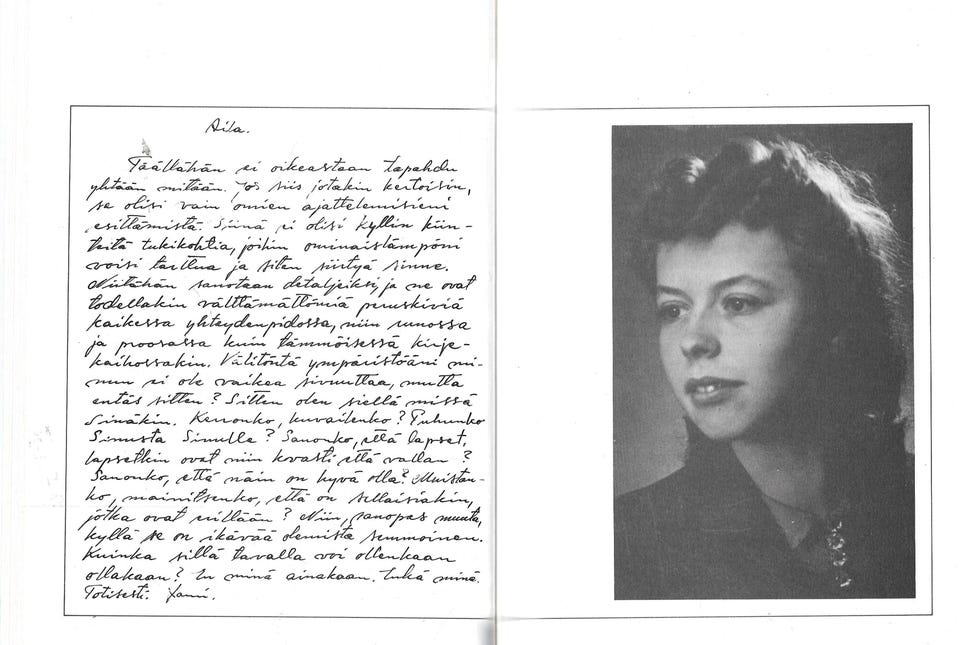 Aila.
Täällähän ei oikeastaan tapahdu
yhtään mitään. Jos siis jotakin kertoisin,
se olisi vain omien ajattelemisieni
esittämistä. Siinä ei olisi kyllin kiin-
teitä tukikohtia, joihin ominaislämpöni
voisi tarttua ja siten siirtyä sinne.
Niitähän sanotaan detaljeiksi, ja ne ovat
todellakin välttämättömiä peruskiviä
kaikessa yhteydenpidossa, niin runossa
ja proosassa kuin tämmöisessä kirje-
kaihossakin. Välitöntä ympäristööni mi-
nun ei ole vaikea sivuuttaa, mutta
entäs sitten? Sitten olen siellä missä
Sinäkin. Kerronko, kuvailenko? Puhunko
Sinusta Sinulle? Sanonko, että lapset,
lapsetkin ovat niin että vallan?
Sanonko, että näin on hyvä olla? Muistan-
ko, mainitsenko, että on sellaisiakin,
jotka ovat erillään? Niin, sanopas muuta,
kyllä se on ikävää olemista semmoinen.
Kuinka sillä tavalla voi ollenkaan
ollakaan? En minä ainakaan. Enkä minä.
Totisesti.